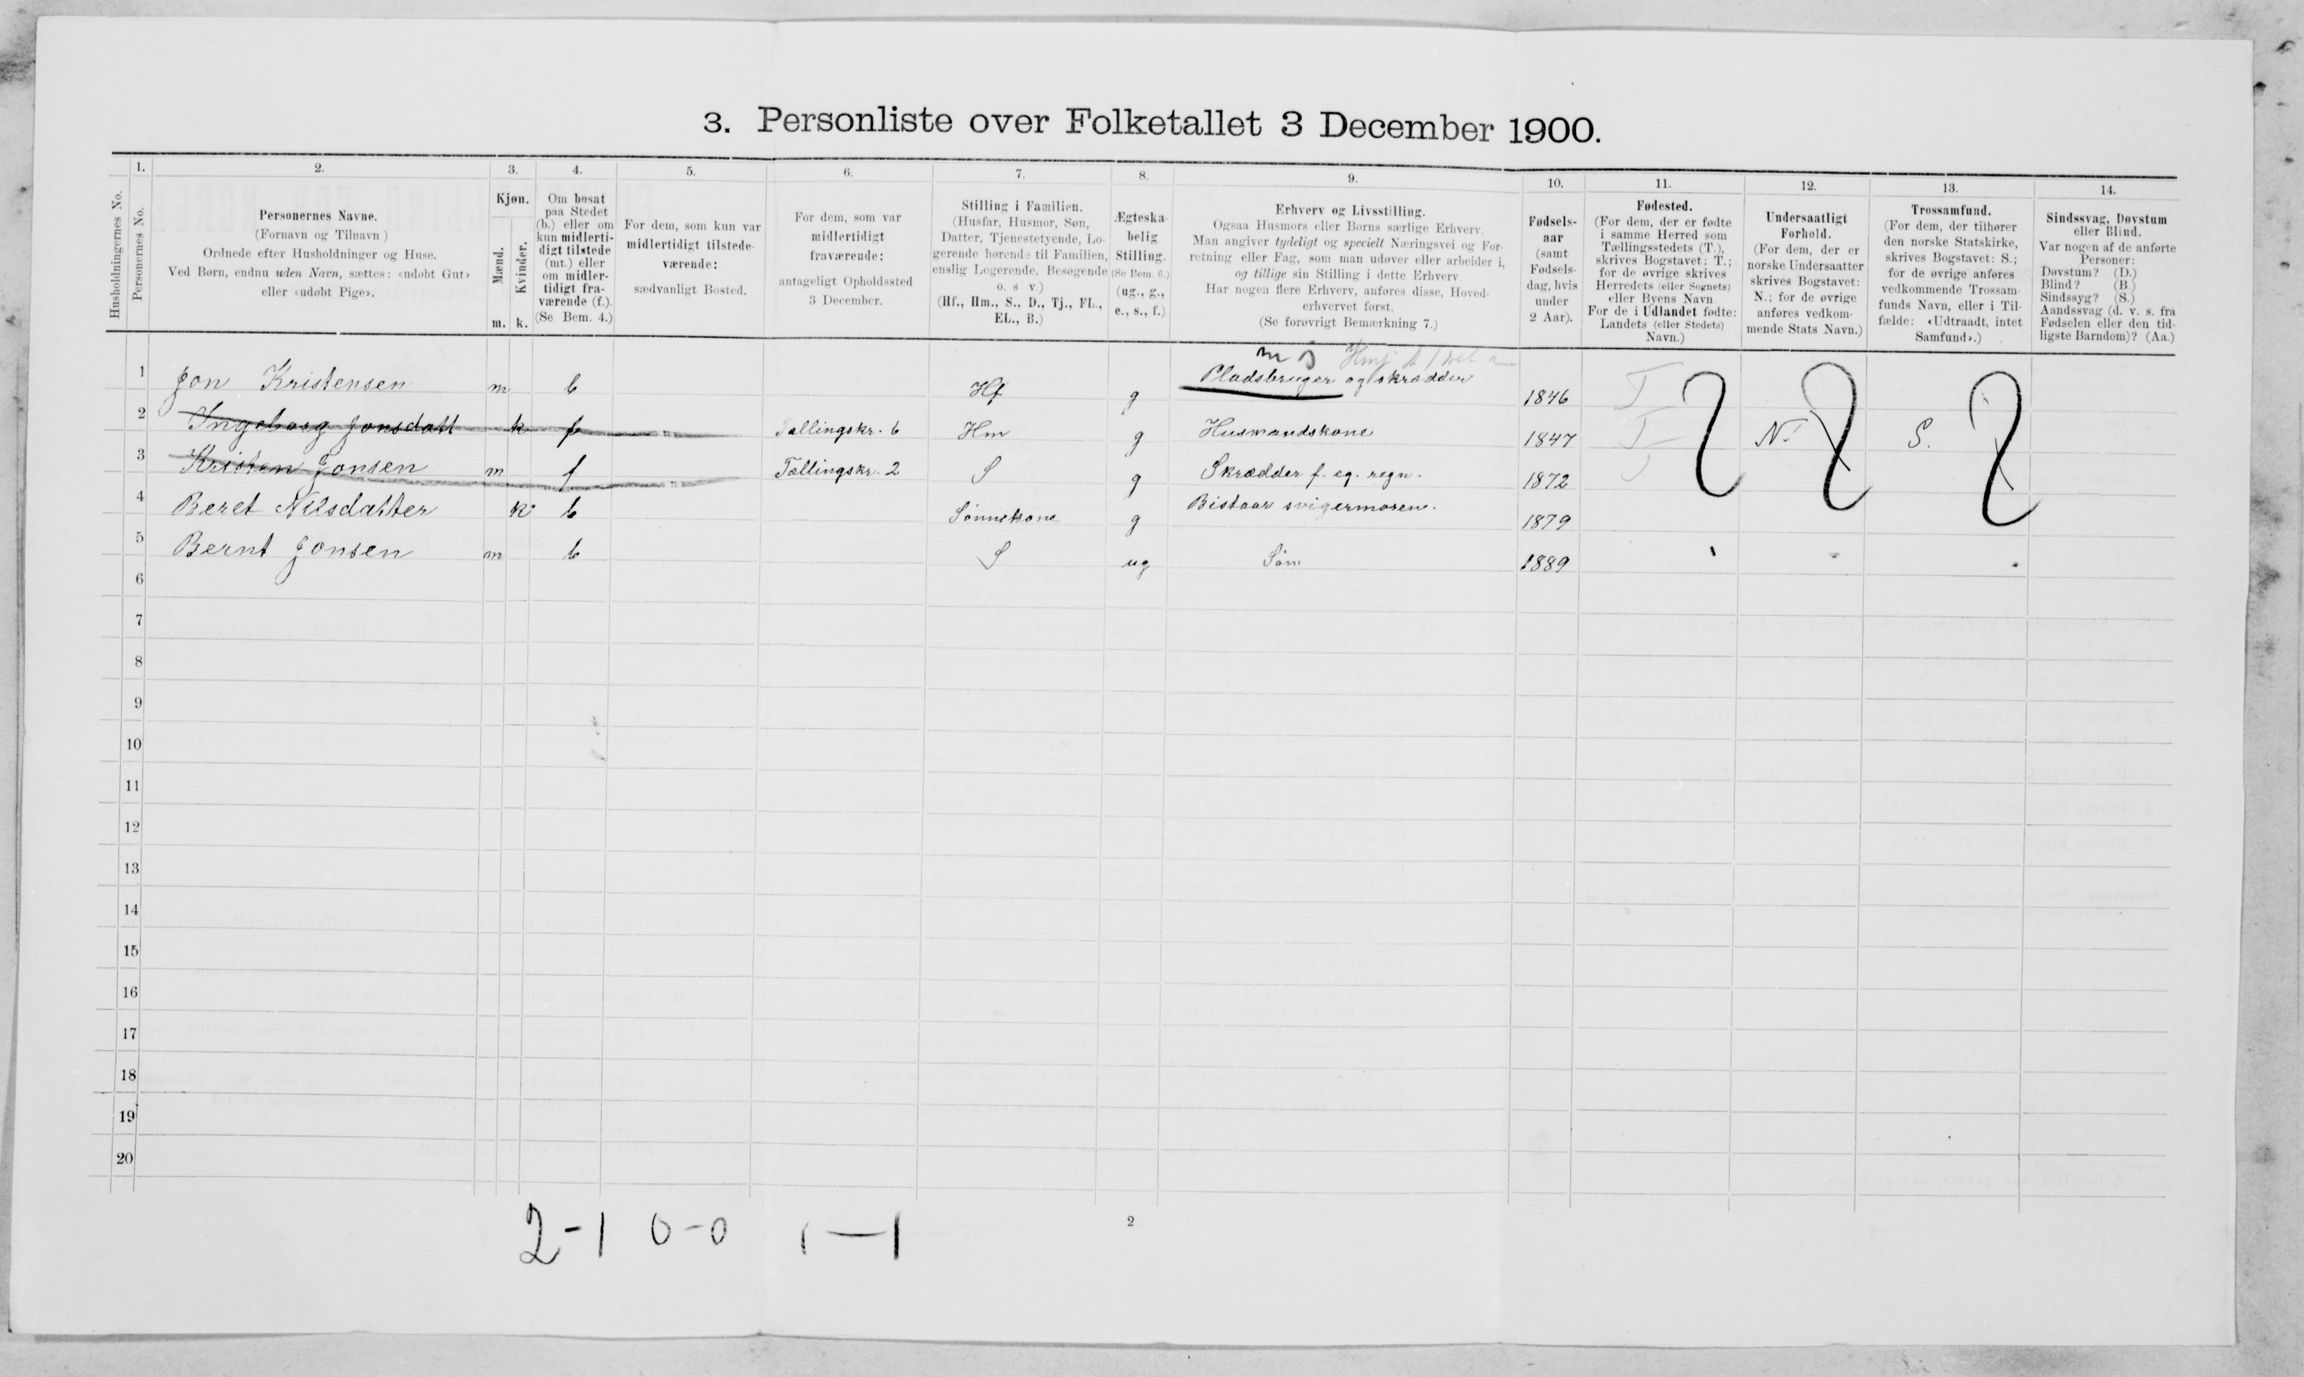 3. Personliste over Folketallet 3 December 1900.
Husholdningernes No.
1.
Personernes No.
2.
Personernes Navne.
(Fornavn og Tilnavn)
Ordnede efter Husholdninger og Huse.
Ved Børn, endnu uden Navn, sættes: «udøbt Gut»
eller «udøbt Pige».
3.
Kjøn.
Mænd.
Kvinder.
m. k.
4.
Om bosat
paa Stedet
(b.) eller om
kun midlerti-
digt tilstede
(mt.) eller
om midler-
tidigt fra-
værende (f.).
(Se Bem. 4.)
5.
For dem, som kun var
midlertidigt tilstede-
værende:
sædvanligt Bosted.
6.
For dem, som var
midlertidigt
fraværende:
antageligt Opholdssted
3 December.
7.
Stilling i Familien.
(Husfar, Husmor, Søn,
Datter, Tjenestetyende, Lo-
gerende hørende til Familien,
enslig Logerende, Besøgende
o. s. v.)
(Hf., Hm., S., D., Tj., FL.,
EL., B.)
8.
Ægteska-
belig
Stilling.
(Se Bem. 6.)
(ug., g.,
e., s., f.)
9.
Erhverv og Livsstilling.
Ogsaa Husmors eller Børns særlige Erhverv.
Man angiver tydeligt og specielt Næringsvei og For-
retning eller Fag, som man udøver eller arbeider i,
og tillige sin Stilling i dette Erhverv.
Har nogen flere Erhverv, anføres disse, Hoved-
erhvervet først.
(Se forøvrigt Bemærkning 7.)
10.
Fødsels-
aar
(samt
Fødsels-
dag, hvis
under
2 Aar).
11.
Fødested.
(For dem, der er fødte
i samme Herred som
Tællingsstedets (T.),
skrives Bogstavet: T.;
for de øvrige skrives
Herredets (eller Sognets)
eller Byens Navn.
For de i Udlandet fødte:
Landets (eller Stedets)
Navn.)
12.
Undersaatligt
Forhold.
(For dem, der er
norske Undersaatter
skrives Bogstavet:
N.; for de øvrige
anføres vedkom-
mende Stats Navn.)
13.
Trossamfund.
(For dem, der tilhører
den norske Statskirke,
skrives Bogstavet: S.;
for de øvrige anføres
vedkommende Trossam-
funds Navn, eller i Til-
fælde: «Udtraadt, intet
Samfund».)
14.
Sindssvag, Døvstum
eller Blind.
Var nogen af de anførte
Personer:
Døvstum? (D.)
Blind? (B.)
Sindssyg? (S.)
Aandssvag (d. v. s. fra
Fødselen eller den tid-
ligste Barndom)? (Aa.)
1 Jon Kristensen m b Hf g Pladsbruger og skrædder 1846 T
2 Ingeborg Jonsdatt k f Tællingskr. 6 Hm g Husmandskone 1847 T N. S.
3 Kristen Jonsen m f Tællingskr. 2 S g Skrædder f. eg. regn. 1872 T
4 Beret Nilsdatter k b Sønnekone g Bistaar svigermoren. 1879
5 Bernt Jonsen m b S ug Søn 1889
6
7
8
9
10
11
12
13
14
15
16
17
18
19
20
2-1 0-0 1-1
2